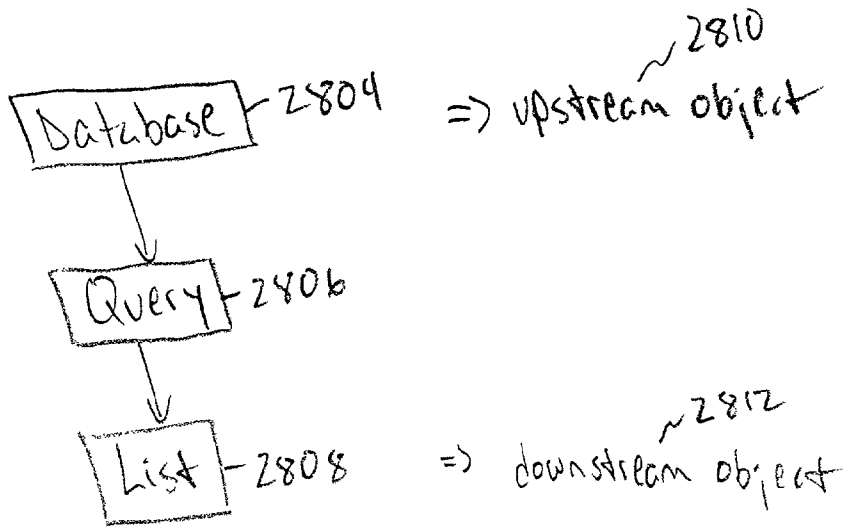 2810
Database 2804 => upstream object
Query 2806
2812
List 2808 => downstream object